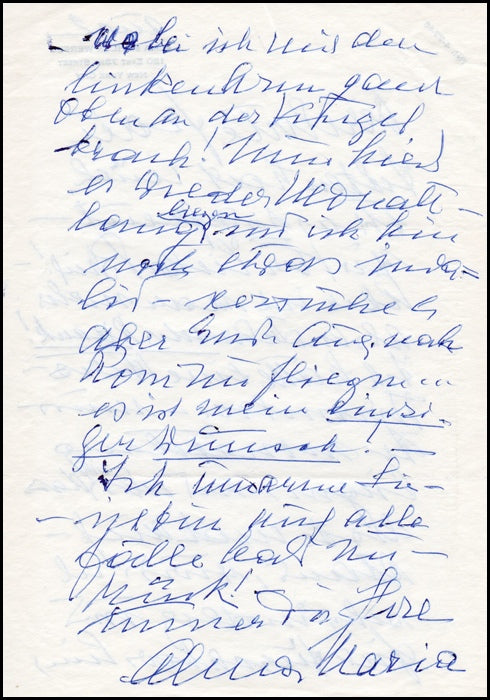 – wobei ich mir den
linken Arm ganz
oben an der Kugel
brach! Nun hiess
es wieder Monate-
lang liegen und ich bin
noch etwas inva-
lid – versuche
aber Ende Aug. nach
Rom zu fliegen...
es ist mein einzi-
ger Wunsch! –
Ich umarme Sie –
auf alle
Fälle
Immer Ihre
Alma Maria